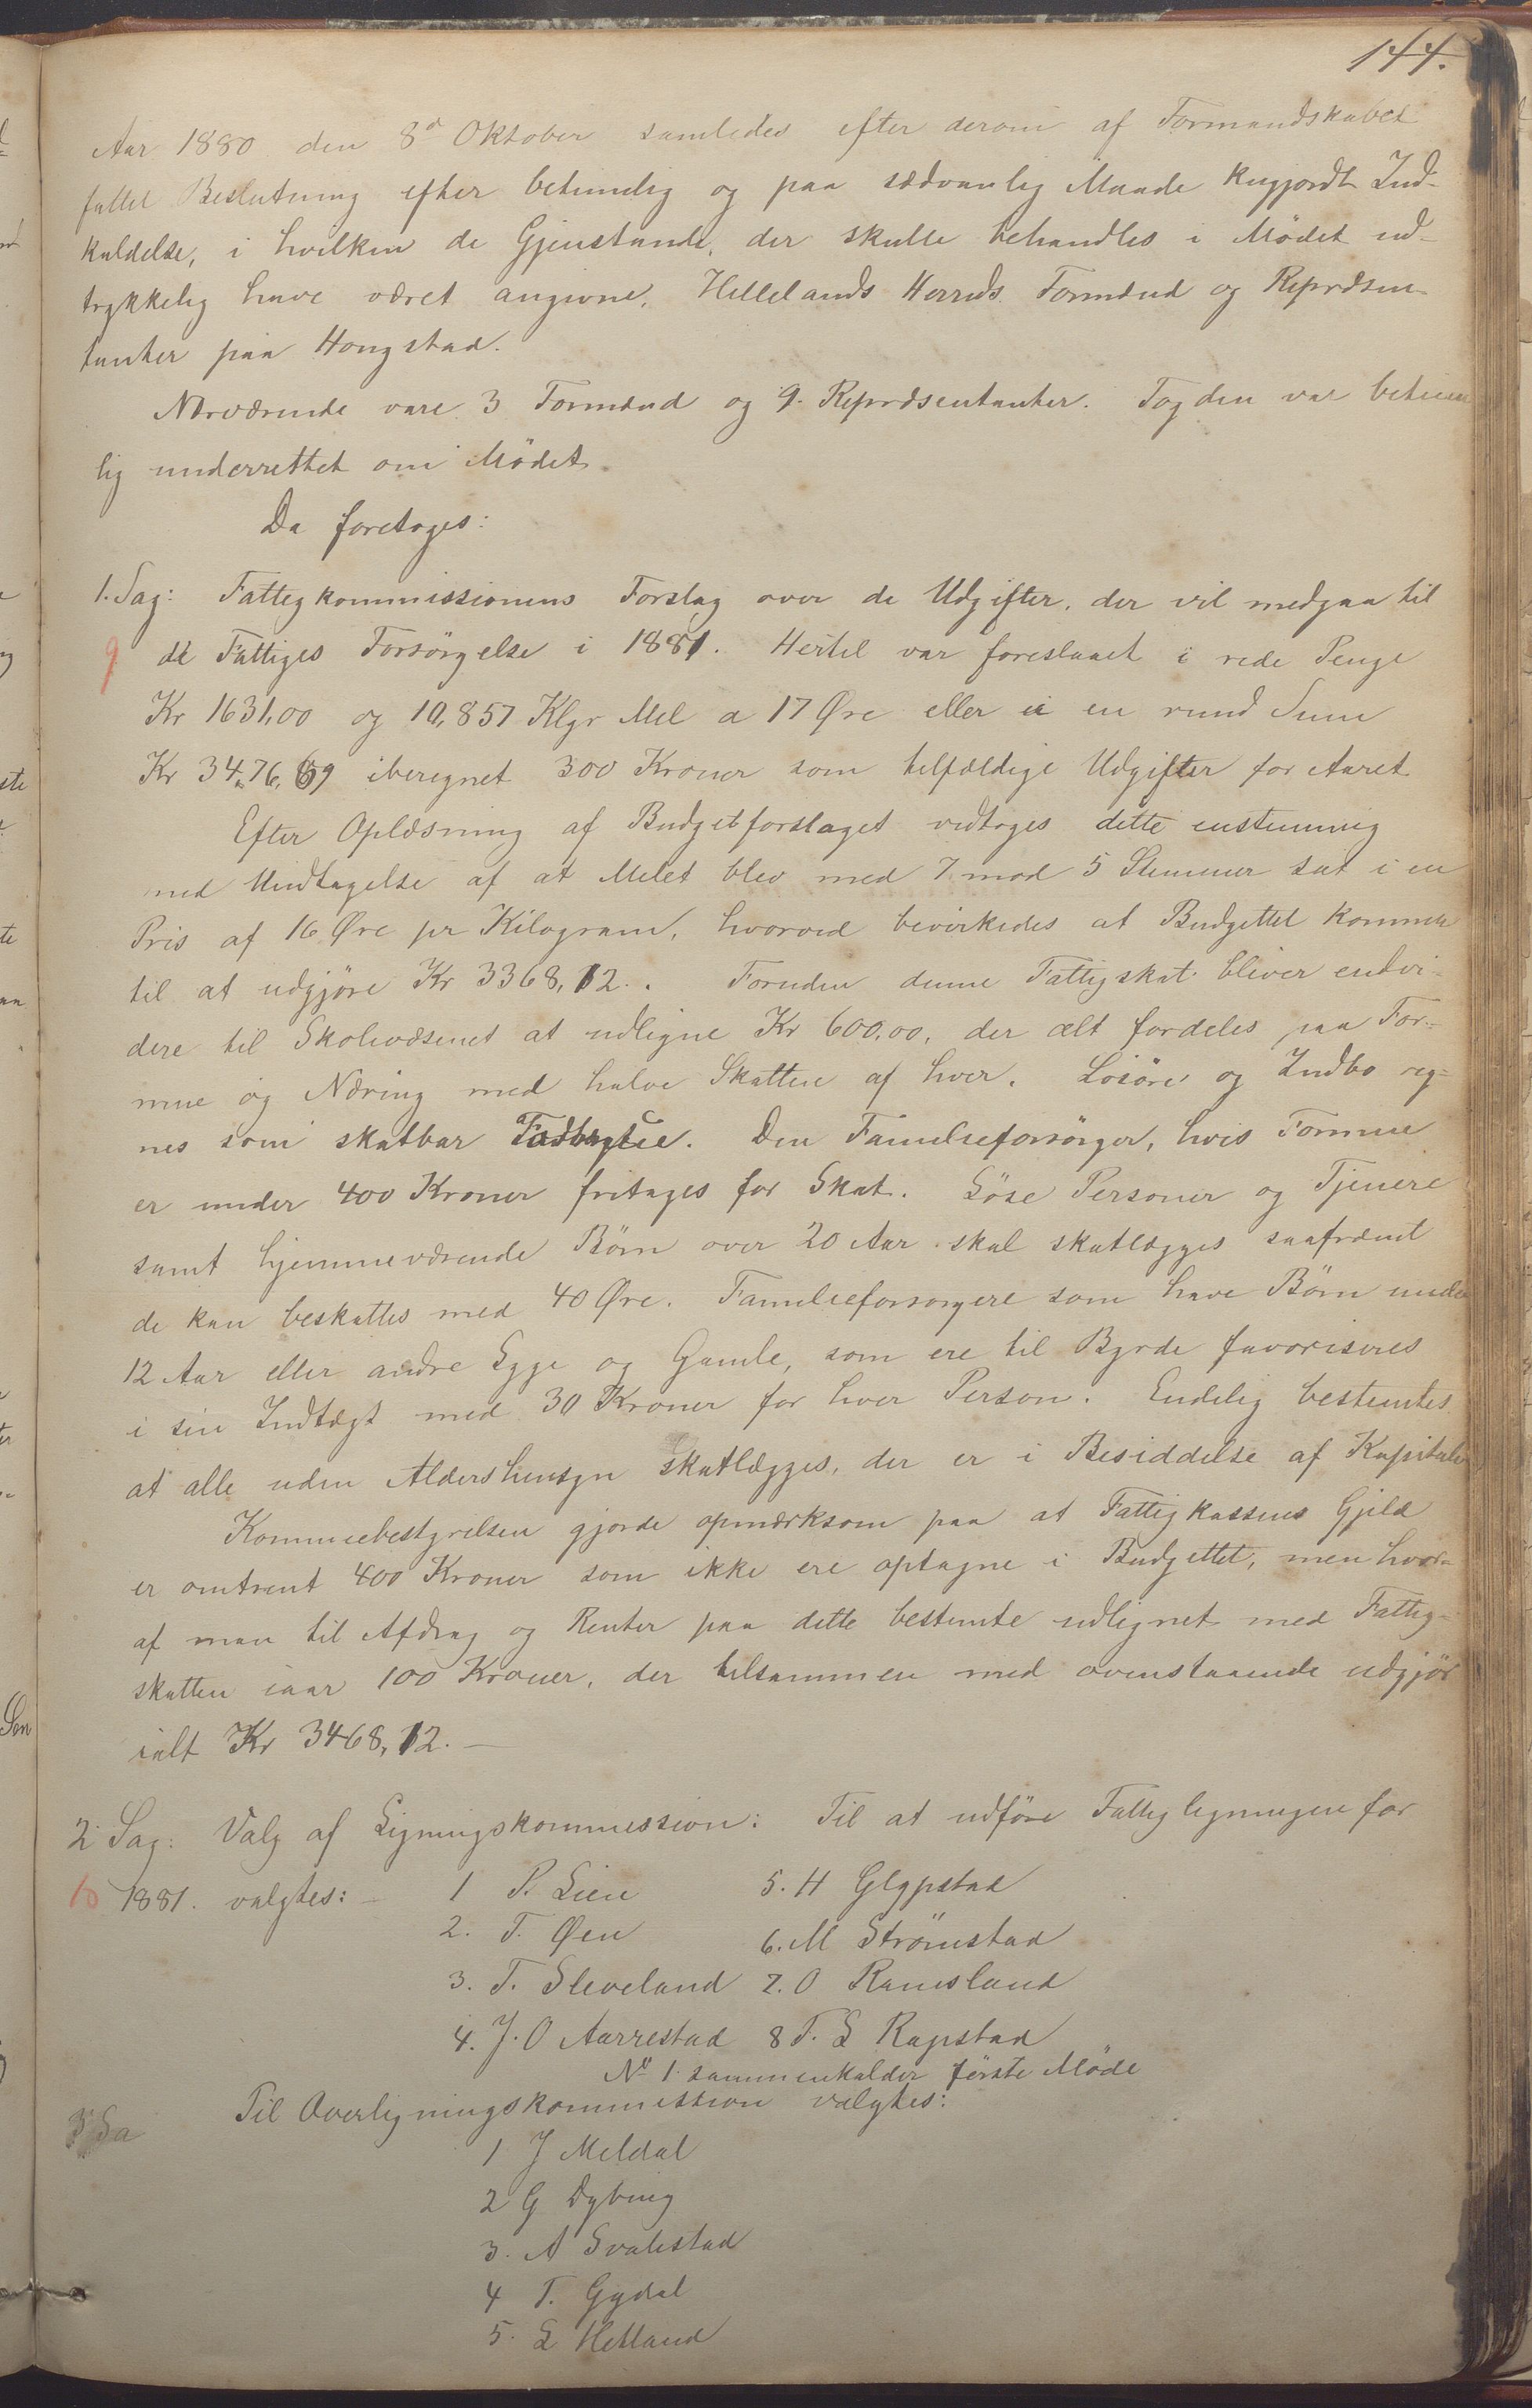 144.
Aar 1880 den 8de Oktober samledes efter derom af Formandskabet
fattet Beslutning efter betimelig og paa sædvanlig Maade kugjordt Ind-
kaldelse, i hvilken de Gjenstande, der skulle behandles i Mødet ud-
trykkelig have været angivne, Hellelands Herreds Formænd og Repræsen-
tanter paa Hougstad.
Nærværende vare 3 Formænd og 9 Repræsentanter. Fogden var betime
lig underrettet om Mødet.
Da foretoges:
1. Sag: Fattigkommissionens Forslag over de Udgifter, der vil medgaa til
9 de Fattiges Forsörgelse i 1881. Hertil var foreslaaet i rede Penge
Kr 1631,00 og 10,857 Klgr Mel a 17 Øre eller i en rund Sum
Kr 3476,69 iberegnet 300 Kroner som tilfældige Udgifter for Aaret
Efter Oplæsning af Budgetforslaget vedtoges dette enstemmig
med Undtagelse af at Melet blev med 7 mod 5 Stemmer sat i en
Pris af 16 Øre pr Kilogram, hvorved bevirkedes at Budgettet kommer
til at udgjöre Kr 3368,12. Foruden denne Fattigskat bliver endvi-
dere til Skolevæsenet at udligne Kr 600,00, der alt fordeles paa For-
mue og Næring med halve Skatten af hver. Lösöre og Indbo reg-
nes som skatbar. Den Familieforsörger, hvis Formue
er under 400 Kroner fritages for Skat. Löse Personer og Tjenere
samt hjemmeværende Börn over 20 Aar skal skatlægges saafremt
de kan beskattes med 40 Øre. Familieforsorgere som have Börn under
12 Aar eller andre Syge og Gamle, som ere til Byrde favoriseres
i sin Indtægt med 30 Kroner for hver Person. Endelig bestemtes
at alle uden Aldershensyn skatlægges, der er i Besiddelse af Kapitaler
Kommuebestyrelsen gjorde opmærksom paa at Fattigkassens Gjeld
er omtrent 400 Kroner som ikke ere optagne i Budgettet, men hvor-
af man til Afdrag og Renter paa dette bestemte udlignet med Fattig-
skatten iaar 100 Kroner, der tilsammen med ovenstaaende udgjör
ialt Kr 3468,12.—
2 Sag: Valg af Ligningskommission: Til at udföre Fattigligningen for
10 1881. valgtes:—
1 P. Lien
2. T. Øen
3. T. Sleveland
4. J. O Aarrestad
5. H Glypstad
6. M Strömstad
7. O Ramsland
8 T. L Rapstad
No 1. sammenkalder förste Möde
3 Sa Til Overligningskommission valgtes:
1 J Meldal
2 G Dybing
3. A Svalestad
4 T. Gydal
5. L Hetland